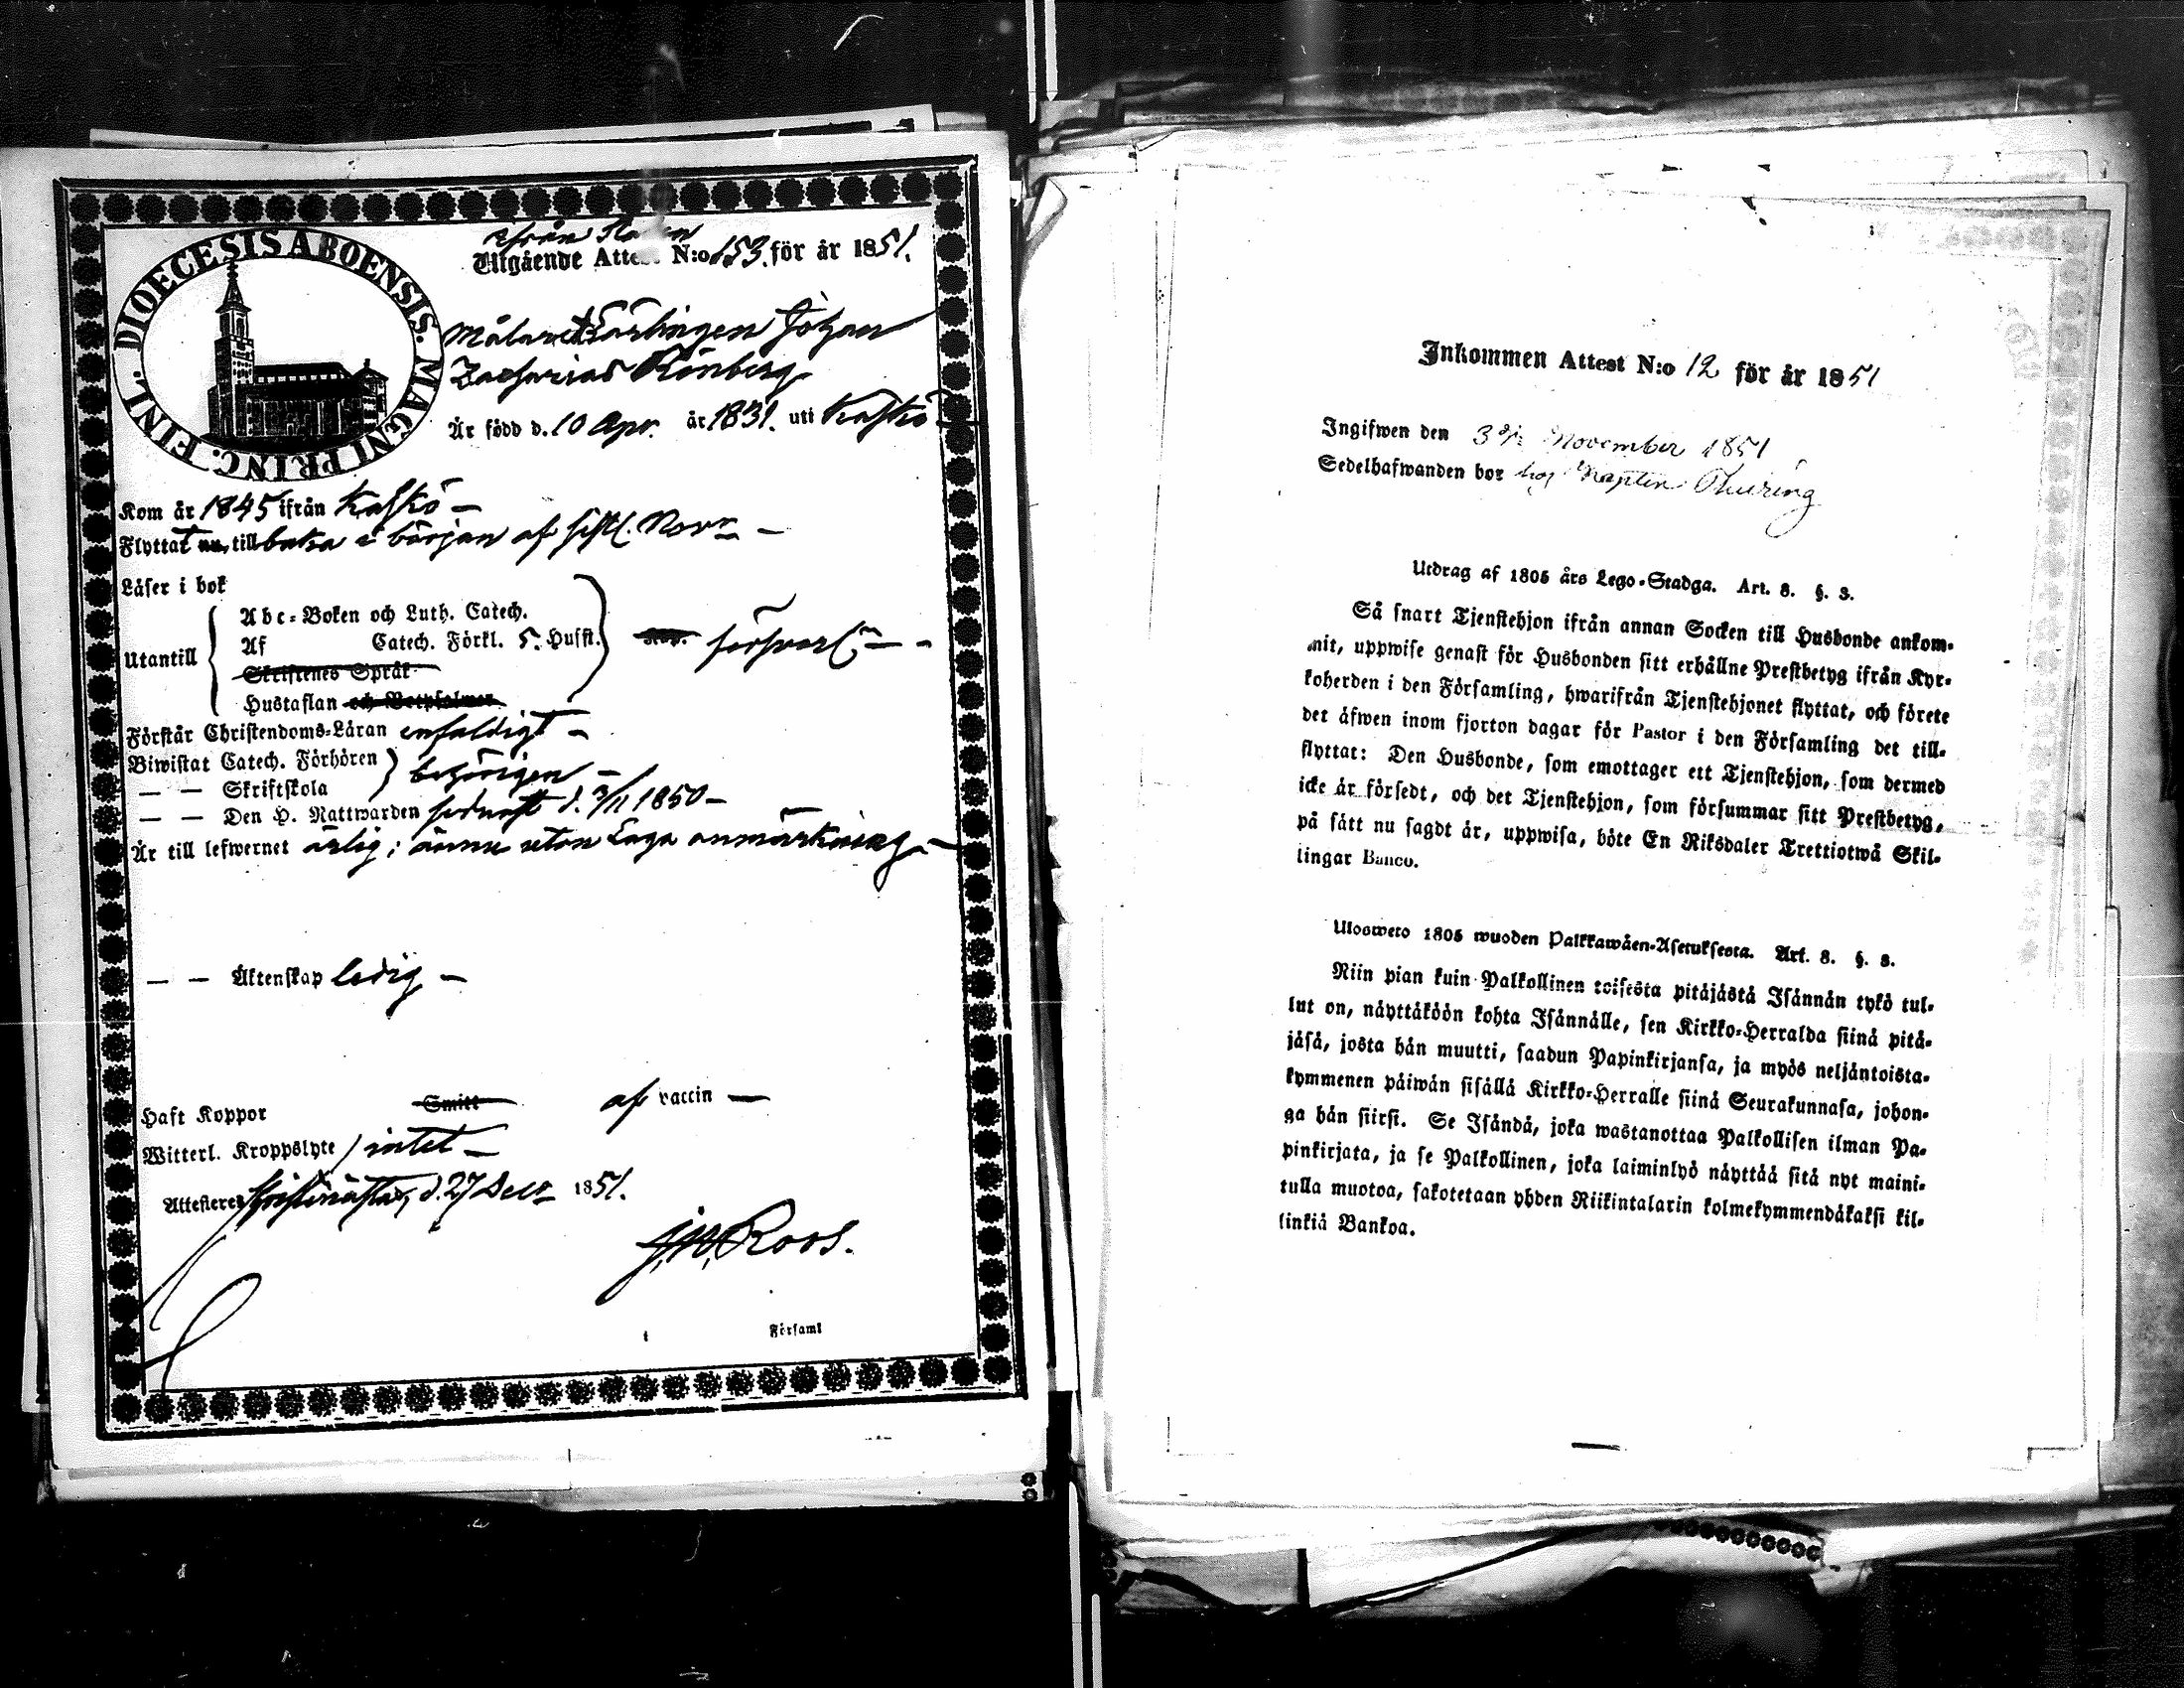 DIOECESIS ABOENSIS. MAGNI PRINC. FINL.
ifrån Staden
Utgående Attest N:o 153. för år 1851.
Målare Lärlingen Johan
Zacharias Rönberg
Är född d. 10 Apr. år 1831. uti Kaskö
Kom år 1845 ifrån Kaskö —
Flyttat nu till baka i början af sistl. Novr —
Läser i bok
Utantill
Abc-Boken och Luth. Catech.
Af Catech. Förkl. 5. Husst.
Skriftenes Språk
Hustaflan och Botpsalmer
försvarl. —
Förstår Christendoms-Läran enfaldigt —
Biwistat Catech. Förhören
— — Skriftskola
behörigen —
— — Den H. Nattwarden sednast d. 3/11 1850 —
Är till lefwernet ärlig; ännu utan Laga anmärkning —
— — Äktenskap ledig —
Haft Koppor Smitt af vaccin —
Witterl. Kroppslyte intet —
Attesteres Christinæstad, d. 27 Decr 1851.
J.W. Roos.
i Församl
Inkommen Attest N:o 12 för år 1851
Ingifwen den November 1851
Sedelhafwanden bor hos Kapten Thuring
Utdrag af 1805 års Lego-Stadga. Art. 8. §. 3.
Så snart Tjenstehjon ifrån annan Socken till Husbonde ankom-
mit, uppwise genast för Husbonden sitt erhållne Prestbetyg ifrån Kyr-
koherden i den Församling, hwarifrån Tjenstehjonet flyttat, och förete
det äfwen inom fjorton dagar för Pastor i den Församling det till-
flyttat: Den Husbonde, som emottager ett Tjenstehjon, som dermed
icke är försedt, och det Tjenstehjon, som försummar sitt Prestbetyg,
på sätt nu sagdt är, uppwisa, böte En Riksdaler Trettiotwå Skil-
lingar Banco.
Ulosweto 1805 wuoden Palkkawäen-Asetuksesta. Art. 8. §. 3.
Niin pian kuin Palkollinen toisesta pitäjästä Isännän tykö tul-
lut on, näyttäköön kohta Isännälle, sen Kirkko-Herralda siinä pitä-
jäsä, josta hän muutti, saadun Papinkirjansa, ja myös neljäntoista-
kymmenen päiwän sisällä Kirkko-Herralle siinä Seurakunnasa, johon-
ga hän siirsi. Se Isändä, joka wastanottaa Palkollisen ilman Pa-
pinkirjata, ja se Palkollinen, joka laiminlyö näyttää sitä nyt maini-
tulla muotoa, sakotetaan yhden Riikintalarin kolmekymmendäkaksi kil-
linkiä Bankoa.